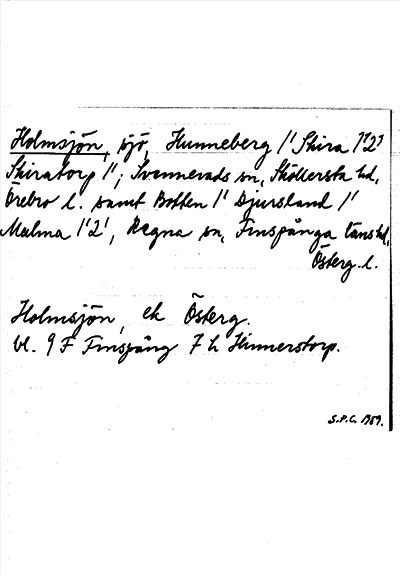 Holmsjön, sjö, Hunneberg 1/1 Skira 1/2,
Skiratorp 1/1; Svennevads sn, Sköllersta hd,
Örebro l. samt Botten 1/1 Djursland 1/1
Malma 1/2, Regna sn, Finspånga läns hd,
Österg. l.
Holmsjön, ek Österg.
bl. 9 F Finspång 7 h Hinnerstorp.
S.P.C. 1959.